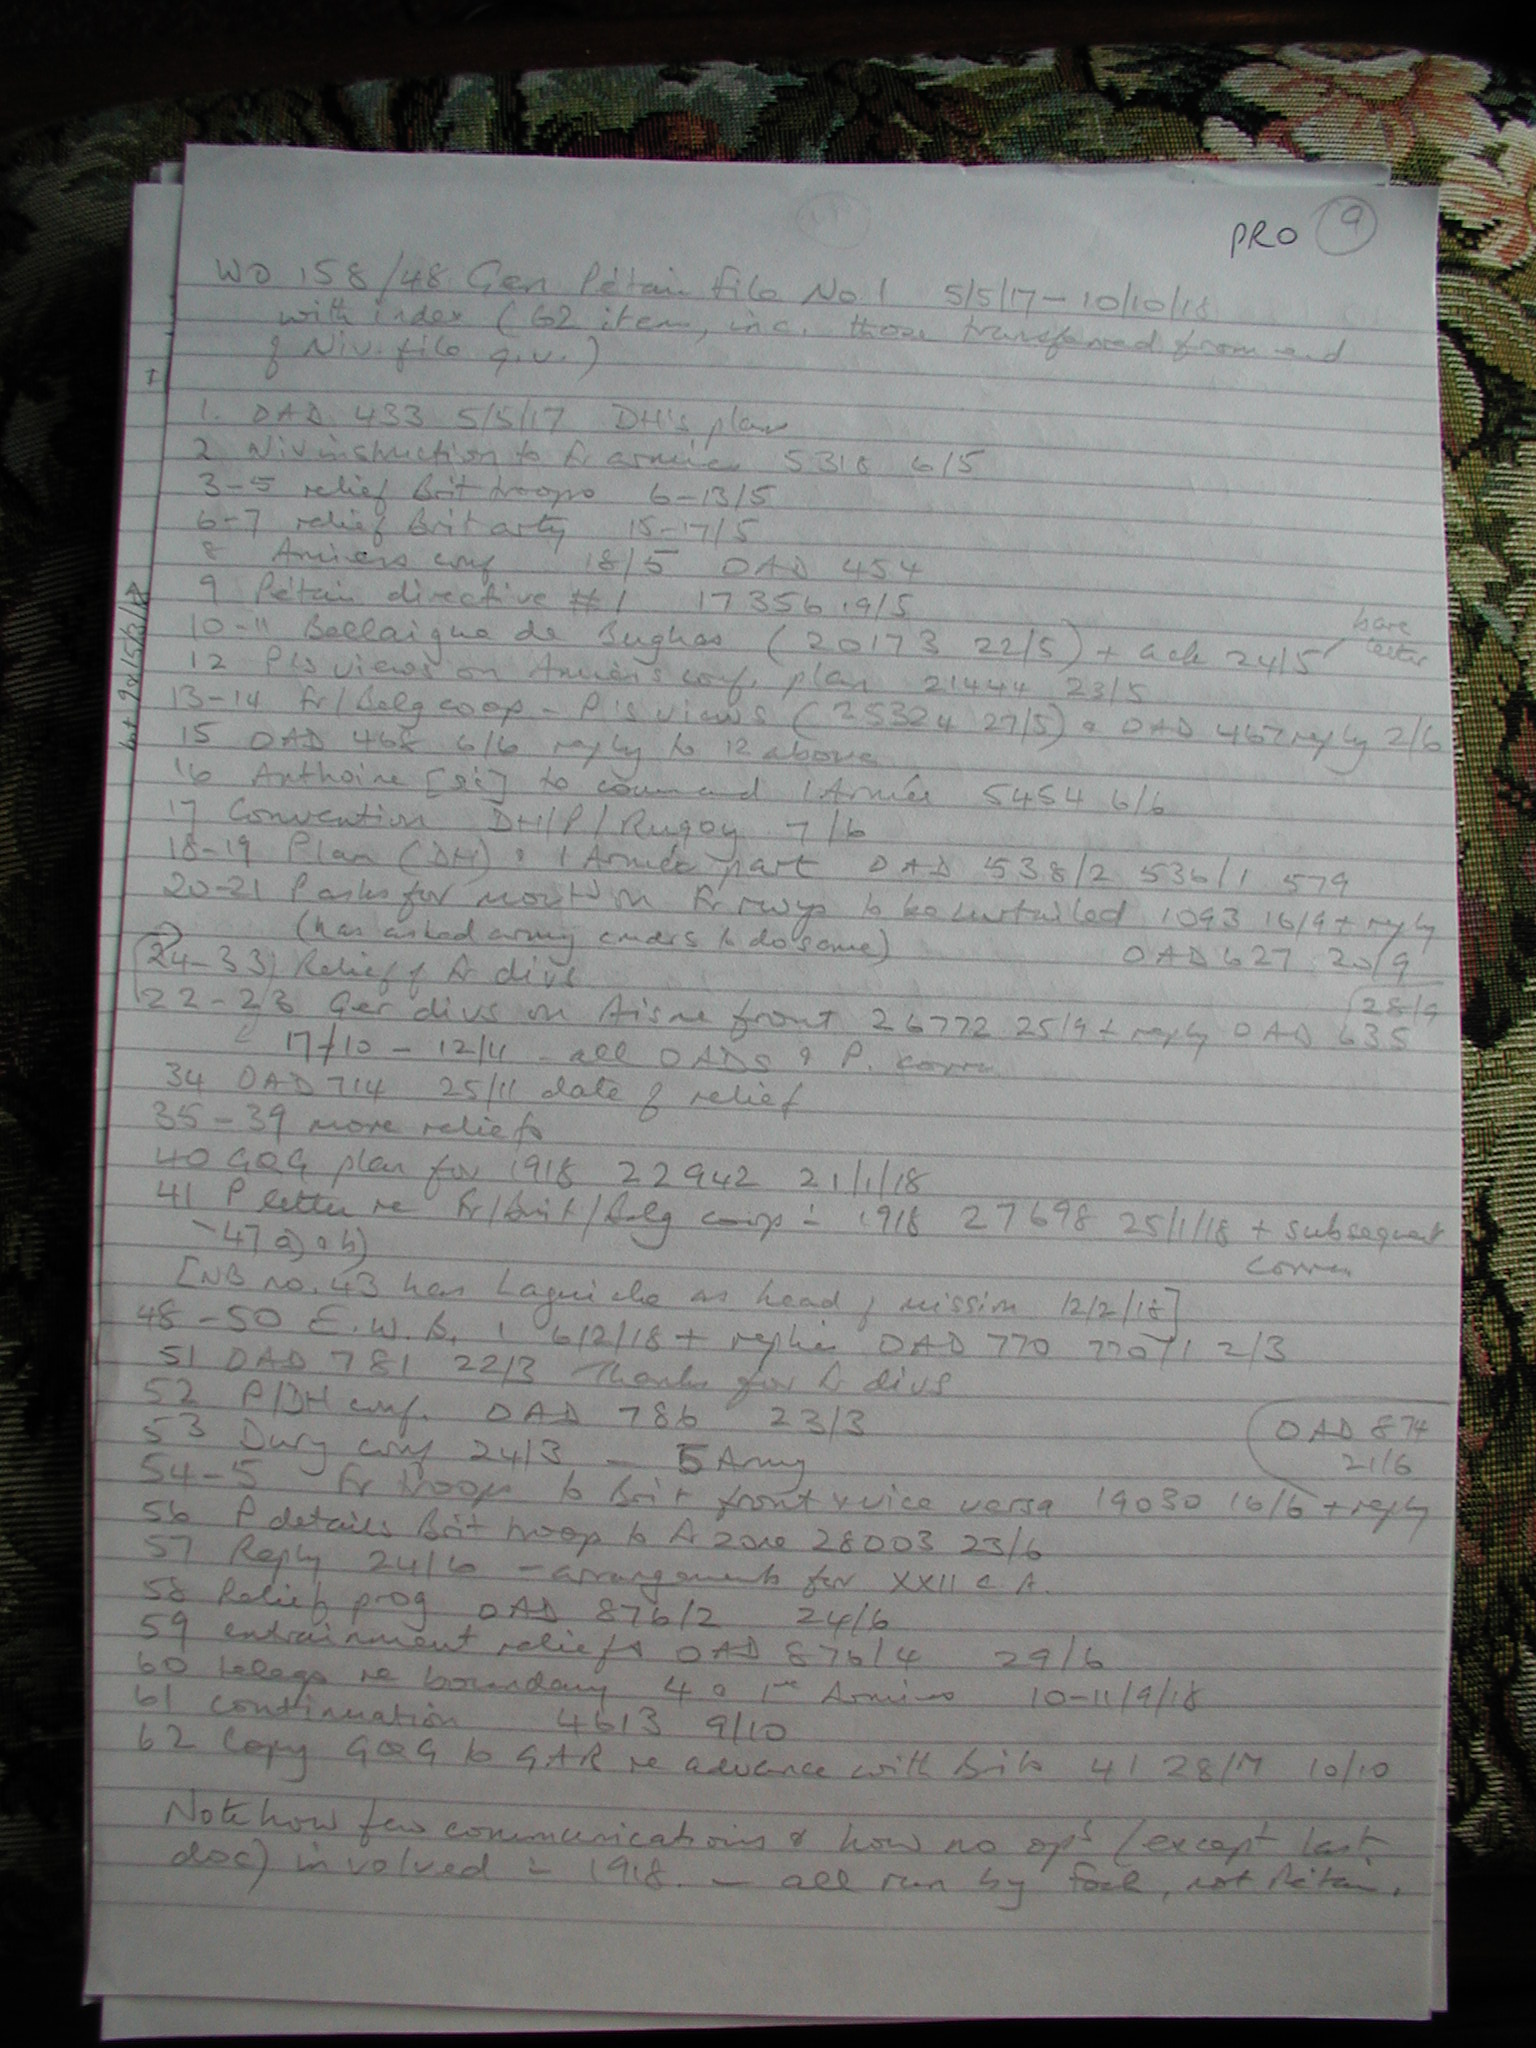 PRO 9
WO 158/48 Gen Pétain file No. 1 5/5/17 – 10/10/18
with index (62 items, inc. those transferred from end
of Niv. file q.v.)
1. OAD 433 5/5/17 DH's plans
2 Niv instruction to Fr armies 5318 6/5
3-5 relief Brit troops 6-13/5
6-7 relief Brit arty 15-17/5
8 Amiens conf 18/5 OAD 454
9 Pétain directive #1 17356 19/5
10-11 Bellaigue de Bughas (20173 22/5) + ack 24/5 bare letter
12 P's views on Amiens conf. plan 21444 23/5
13-14 Fr/Belg coop – P's views (25324 27/5) & OAD 467 reply 2/6
15 OAD 468 6/6 reply to 12 above
16 Anthoine [sic] to command 1 Armée 5454 6/6
17 Convention DH/P/Rugoy 7/6
18-19 Plan (DH) & 1 Armée part OAD 538/2 536/1 579
20-21 P asks for movt on Fr rwys to be curtailed 1093 16/9 + reply
(has asked army cmdrs to do same) OAD 627 20/9
24-33 Relief of Fr divs
22-23 Ger divs on Aisne front 26772 25/9 + reply OAD 635 28/9
17/10 – 12/11 – all OADs & P. corres
34 OAD 714 25/11 date of relief
35-39 more reliefs
40 GQG plan for 1918 22942 21/1/18
41 P letter re Fr/Brit/Belg coop in 1918 27698 25/1/18 + subsequent
-47 a) & b) corres
[NB no. 43 has Laguiche as head of mission 12/2/18]
48-50 E.W.B. 1 6/2/18 + replies OAD 770 770/1 2/3
51 OAD 781 22/3 Thanks for Fr divs
52 P/DH conf. OAD 786 23/3
53 Dury conf 24/3 – 5 Army
OAD 874
21/6
54-5 Fr troops to Brit front & vice versa 19030 16/6 + reply
56 P details Brit troop to Fr zone 28003 23/6
57 Reply 24/6 – arrangements for XXII C A.
58 Relief prog OAD 876/2 24/6
59 entrainment reliefs OAD 876/4 29/6
60 telegs re boundary 4 & 1re Armies 10-11/9/18
61 continuation 4613 9/10
62 Copy GQG to GAR re advance with Brits 4128/M 10/10
Note how few communications & how no ops (except last
doc) involved in 1918. – all run by Foch, not Pétain.